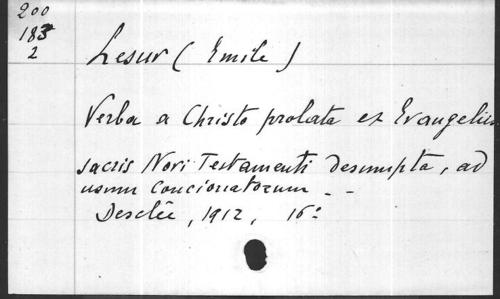 200
183
2
Lesur (Emile)
Verba a Christo prolata et Evangeliis
sacris Novi Testamenti desumpta, ad
usum concionatorum - -
Desclée, 1912, 16°